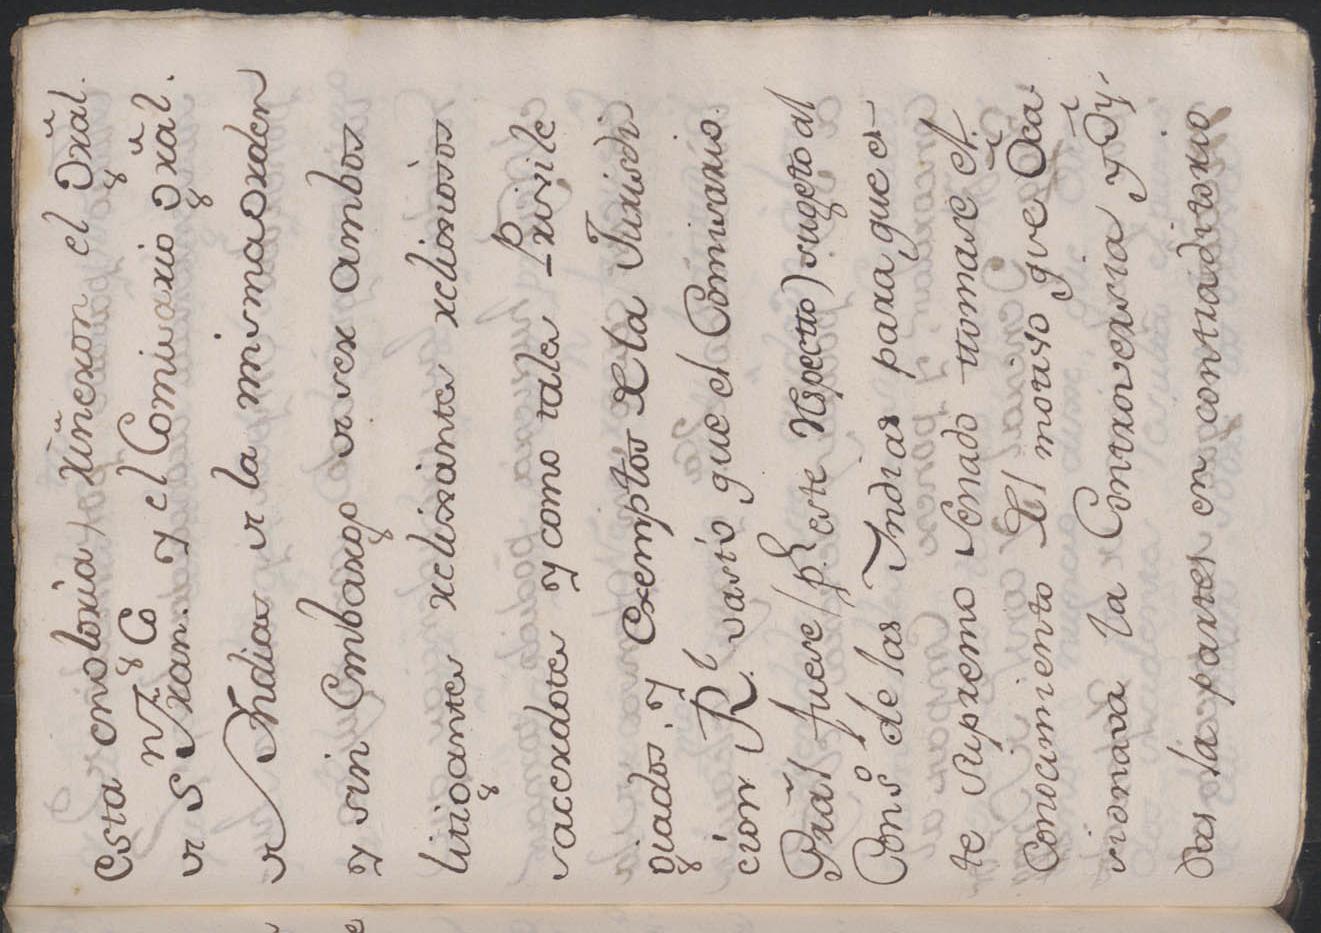 Esta conotoria riñeron el Grãl.
s S. N. Fran.co y el Comisario Grãl.
s Indias s la mismaorden
y sin Embargo s ser ambos
litigantes reclixiantes relixiosos
sacerdotes y como tales Privile
giados, y Exemptos de la Jurisdi
cion Rl. vasto que el Comisario
Grãl fuese (pr. este respecto) sugeto al
Cons.o de las Indias para que es
te supremo Senado tomase el
Conocimiento del motivo que Oca
sionava la Controversia y Oy
das las partes en contradictorio